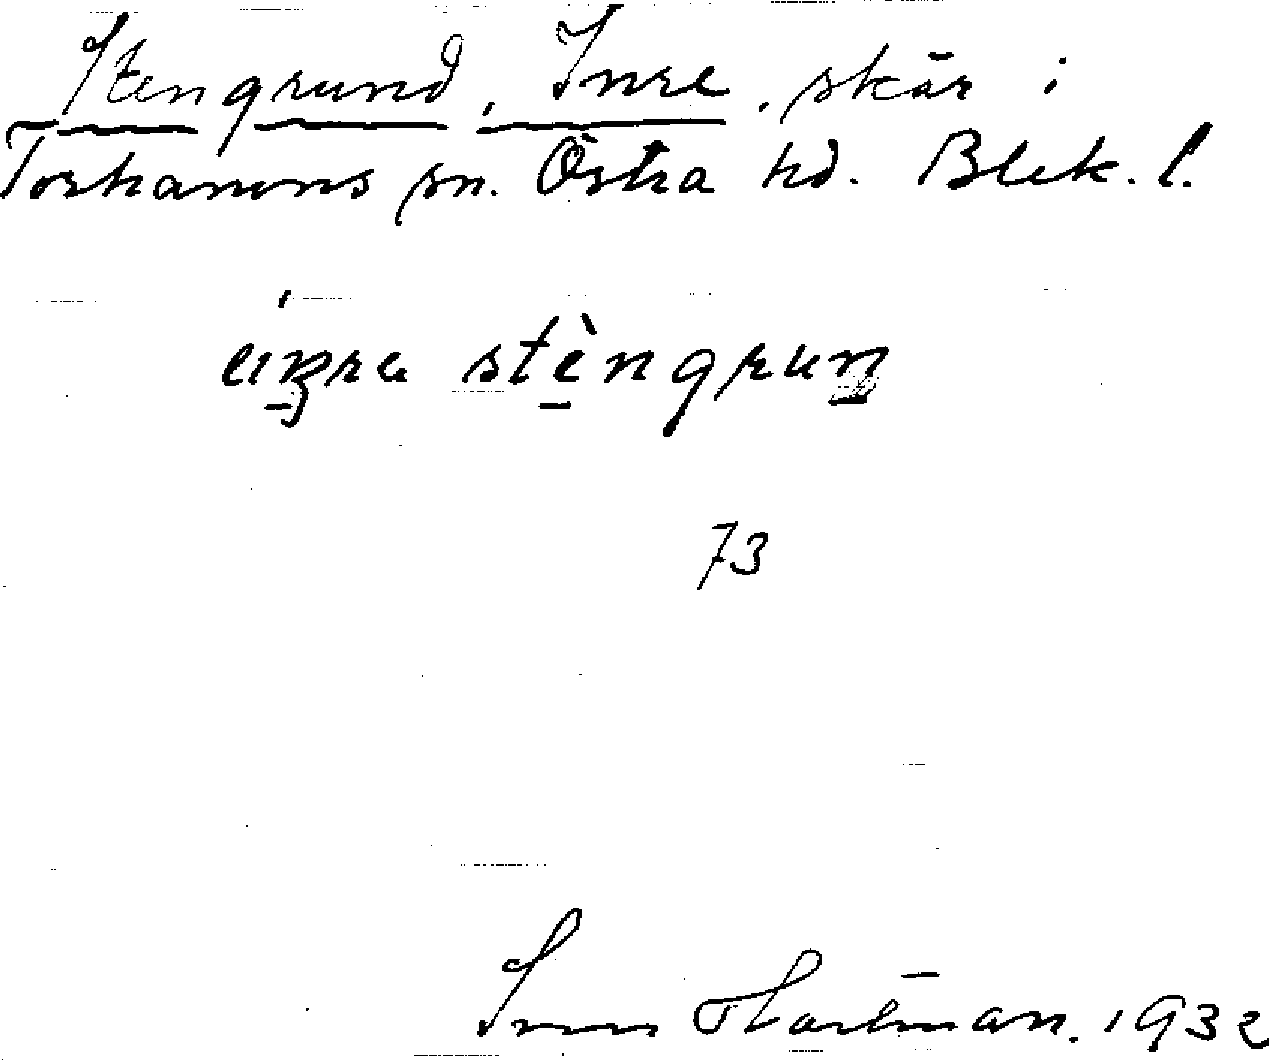 Stengrund, Inre, skär i
Torhamns sn. Östra hd. Blek. l.
stèngrun
73
Hartman. 1932